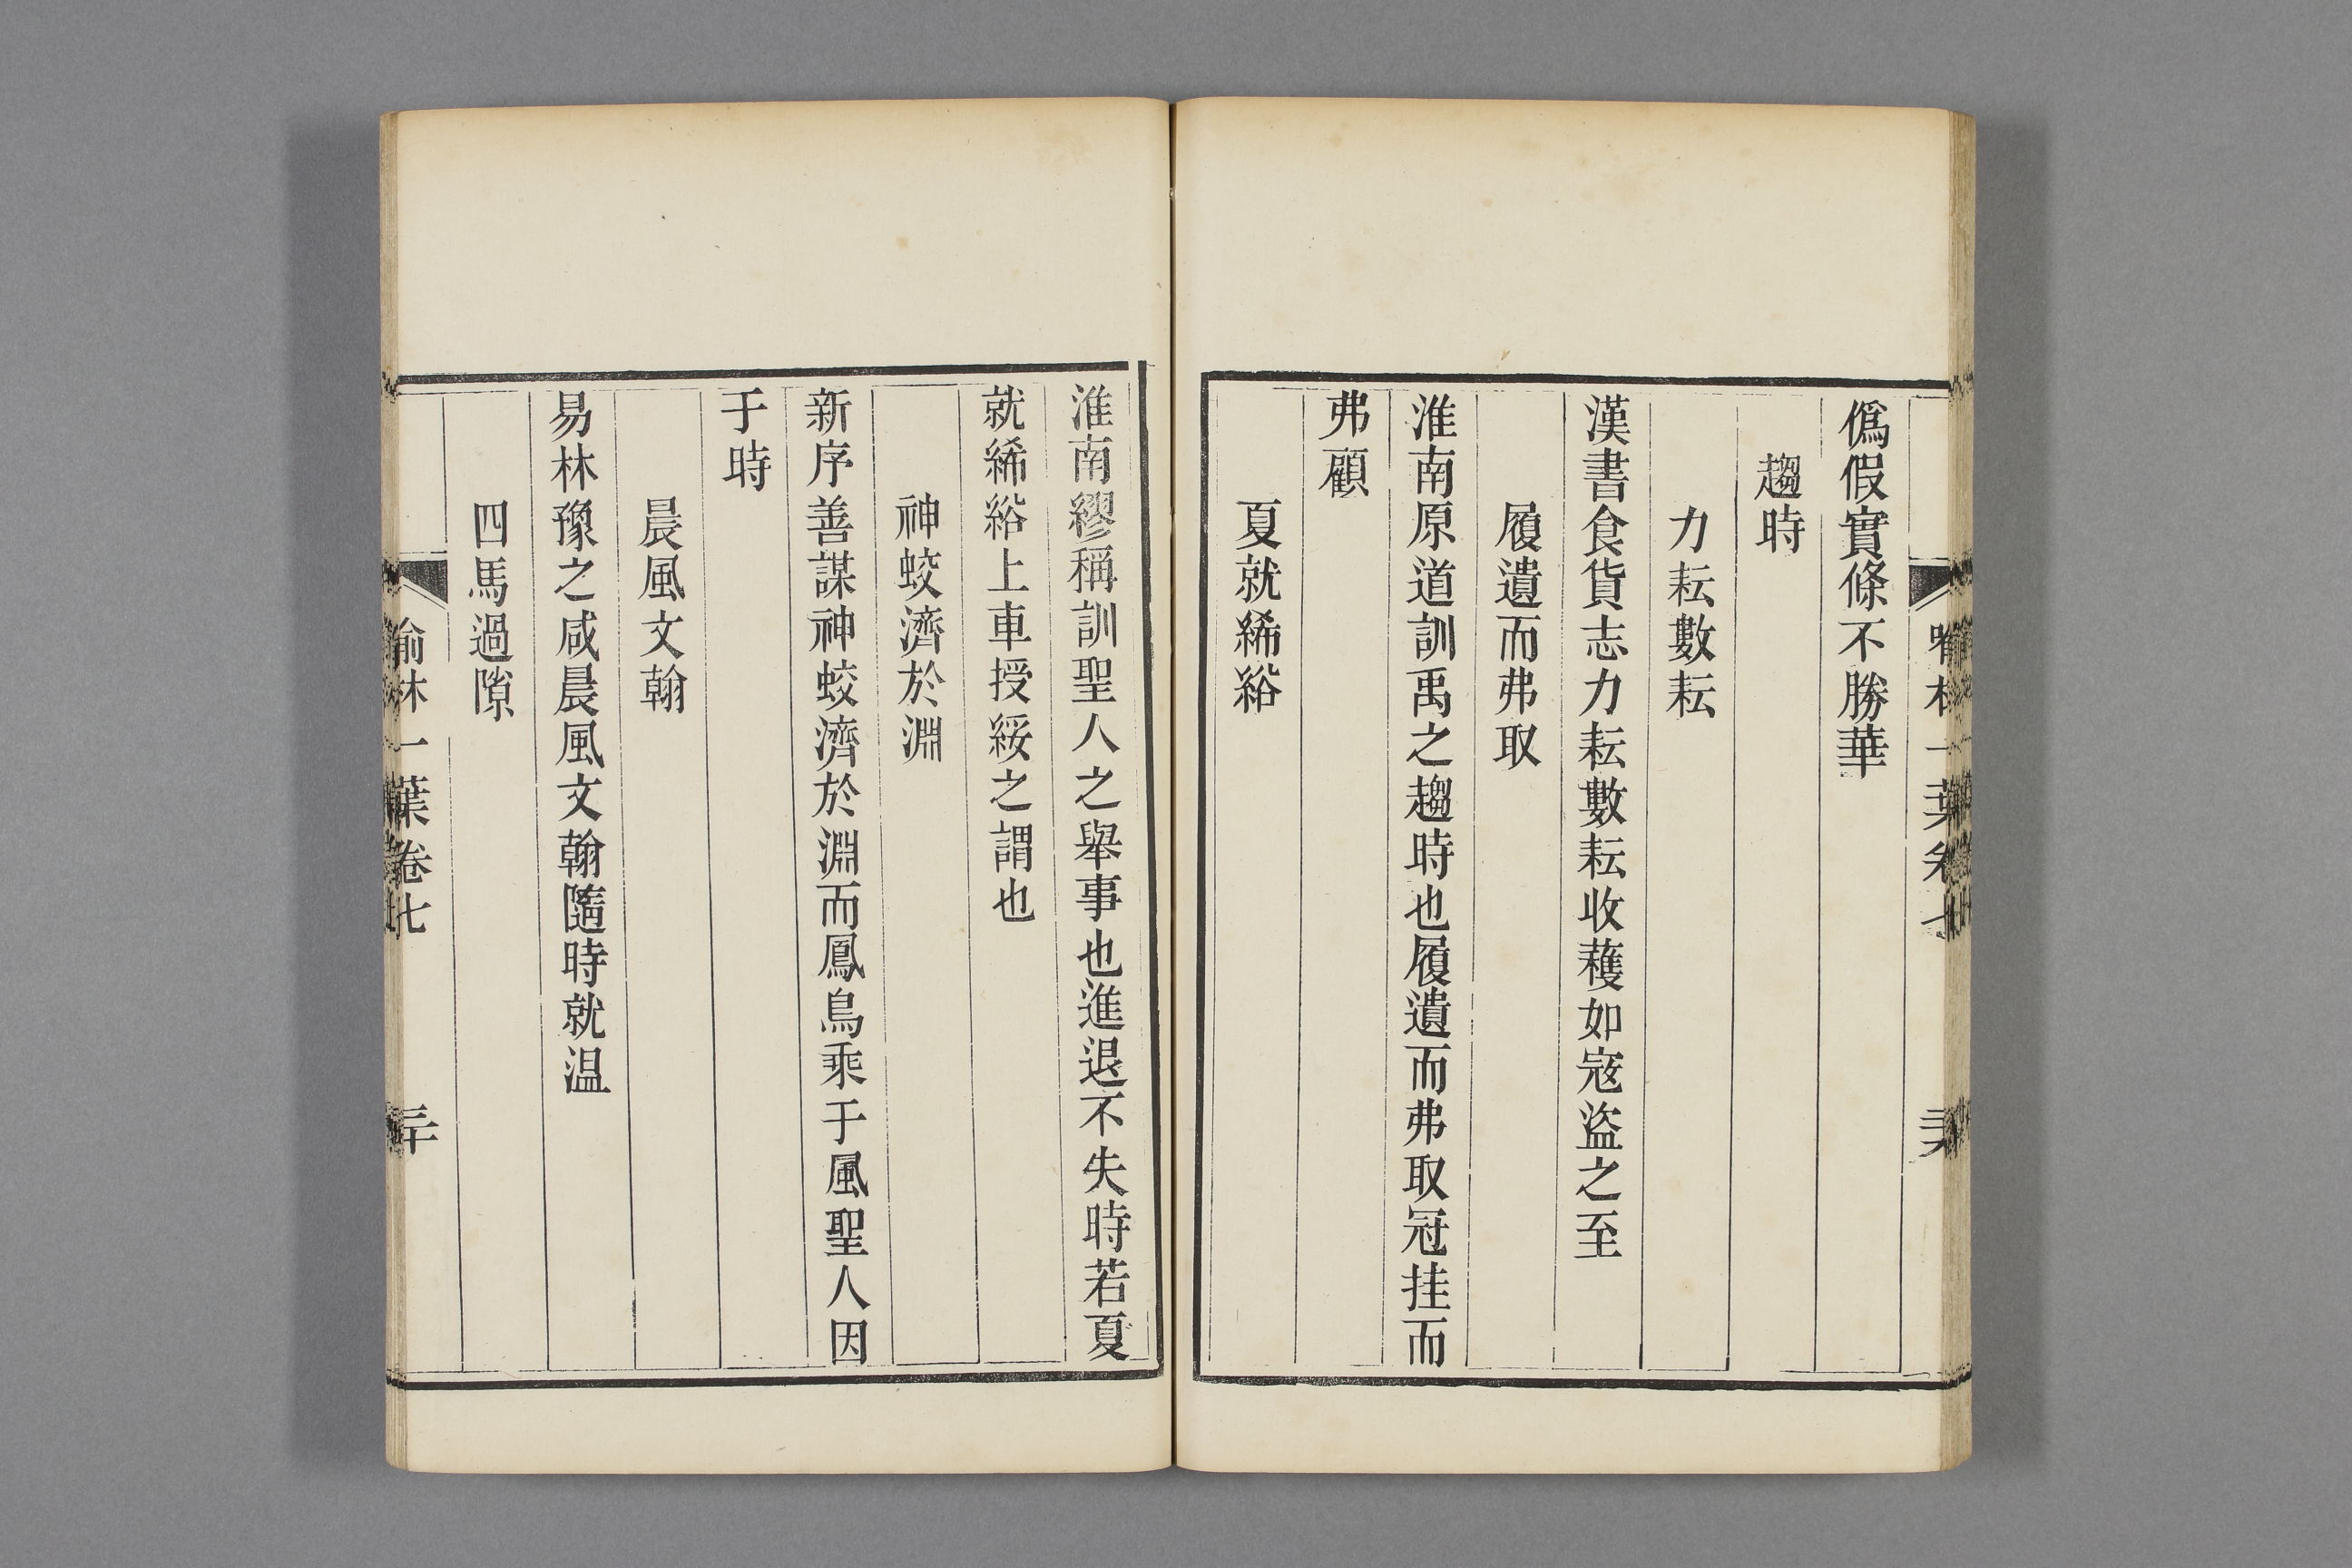 僞假實條不勝華
趨時
力耘數耘
漢書食貨志力耘數耘收穫如寇盜之至
履遺而弗取
淮南原道訓禹之趨時也履遺而弗取冠挂而
弗顧
夏就絺綌
淮南繆稱訓聖人之舉事也進退不失時若夏
就絺綌上車授綏之謂也
神蛟濟於淵
新序善謀神蛟濟於淵而鳳鳥乘于風聖人因
于時
晨風文翰
易林豫之咸晨風文翰隨時就温
四馬過隙
喻林一葉卷七